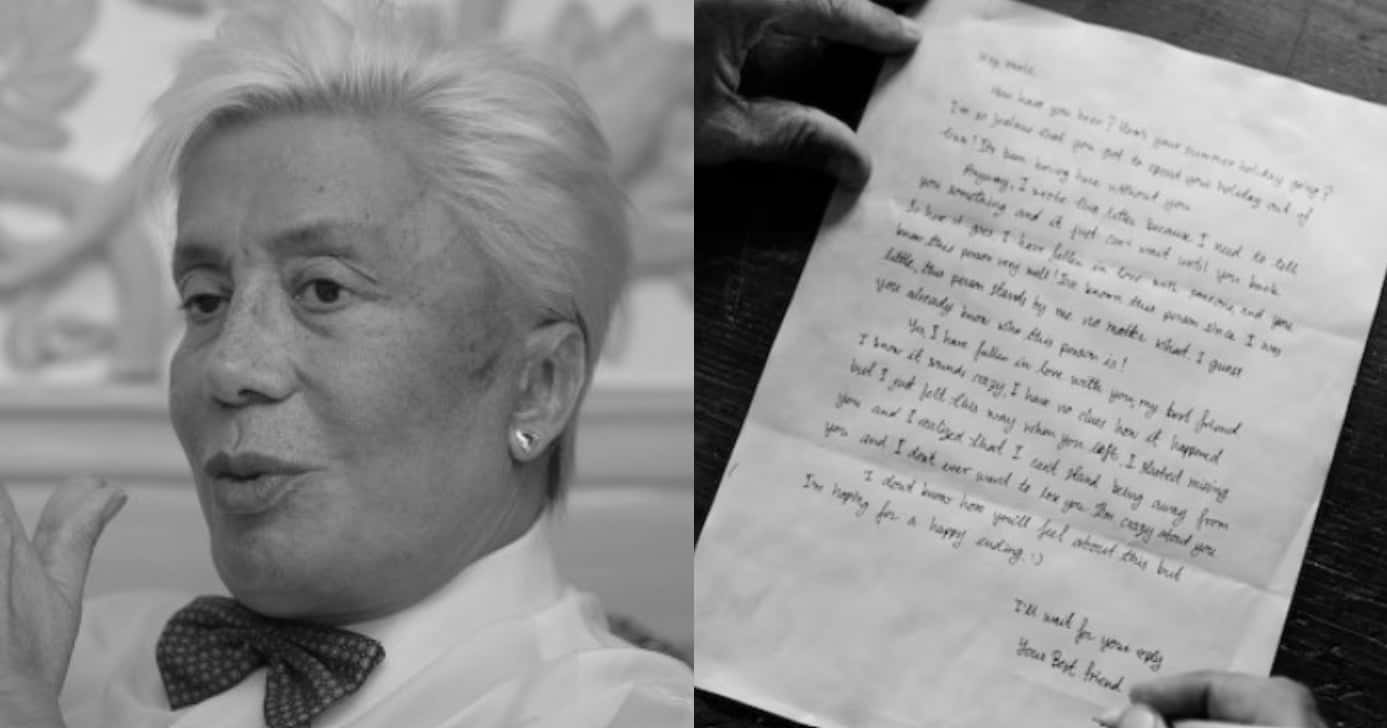 How have you been? How's your summer holiday going?
I'm so jealous that you got to spend your holiday out of
town! I've been boring here without you
Anyway, I wrote this letter because I need to tell
you something and it just can't wait until you back
So here it goes I have fallen in love with someone, and you
know this person very well! I've known this person since I was
little, this person stands by me no matter what. I guess
you already know who this person is!
Yes, I have fallen in love with you, my best friend
I know it sounds crazy, I have no clues how it happened
but I just felt this way when you left. I started missing
you and I realized that I can't stand being away from
you and I don't ever want to lose you. I'm crazy about you
I don't know how you'll feel about this but
I'm hoping for a happy ending. :)
I'll wait for your reply
Your Best friend